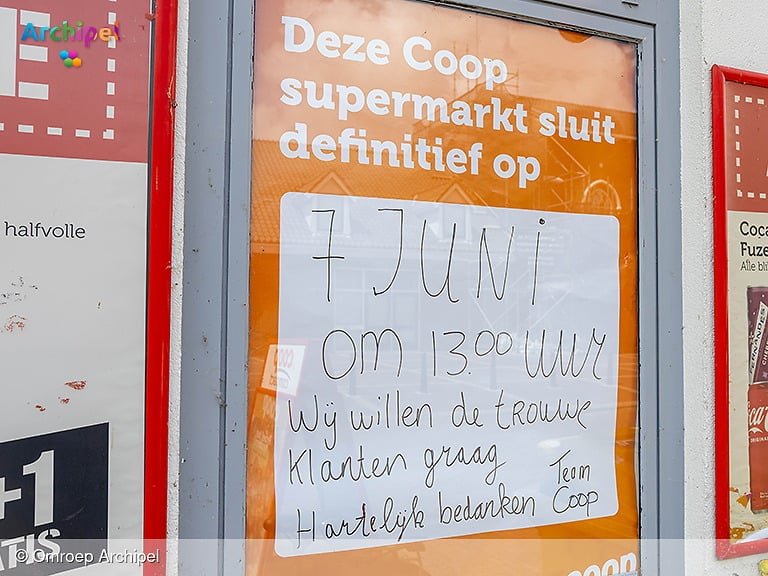 Archipel
halfvolle
+1
ATIS
Deze Coop
supermarkt sluit
definitief op
7 JUNI
om 13.00 uur
Wij willen de trouwe
klanten graag
Hartelijk bedanken Team
Coop
coop
coop
Coca
Fuze
Alle bli
FERNANDES
CHER
ORIGINA
© Omroep Archipel